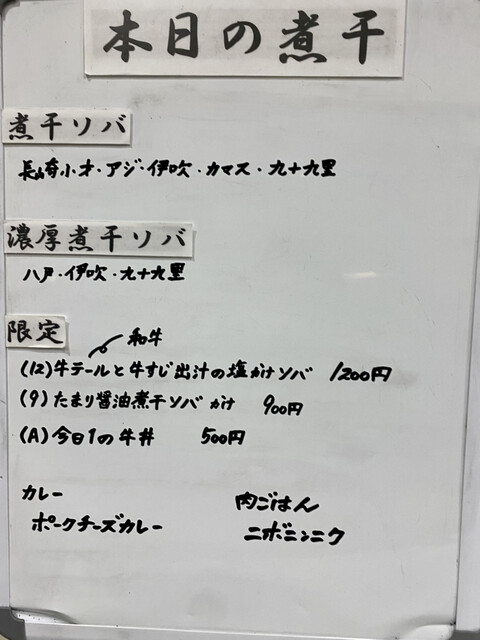 本日の煮干
煮干ソバ
長崎小才・アジ・伊吹・カマス・九十九里
濃厚煮干ソバ
八戸・伊吹・九十九里
限定
和牛
(12)牛テールと牛すじ出汁の塩かけソバ 1200円
(9)たまり醤油煮干ソバ かけ 900円
(A)今日1の牛丼 500円
カレー
ポークチーズカレー
肉ごはん
ニボニンニク